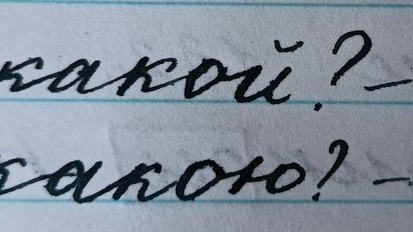 какой? –
какою? –